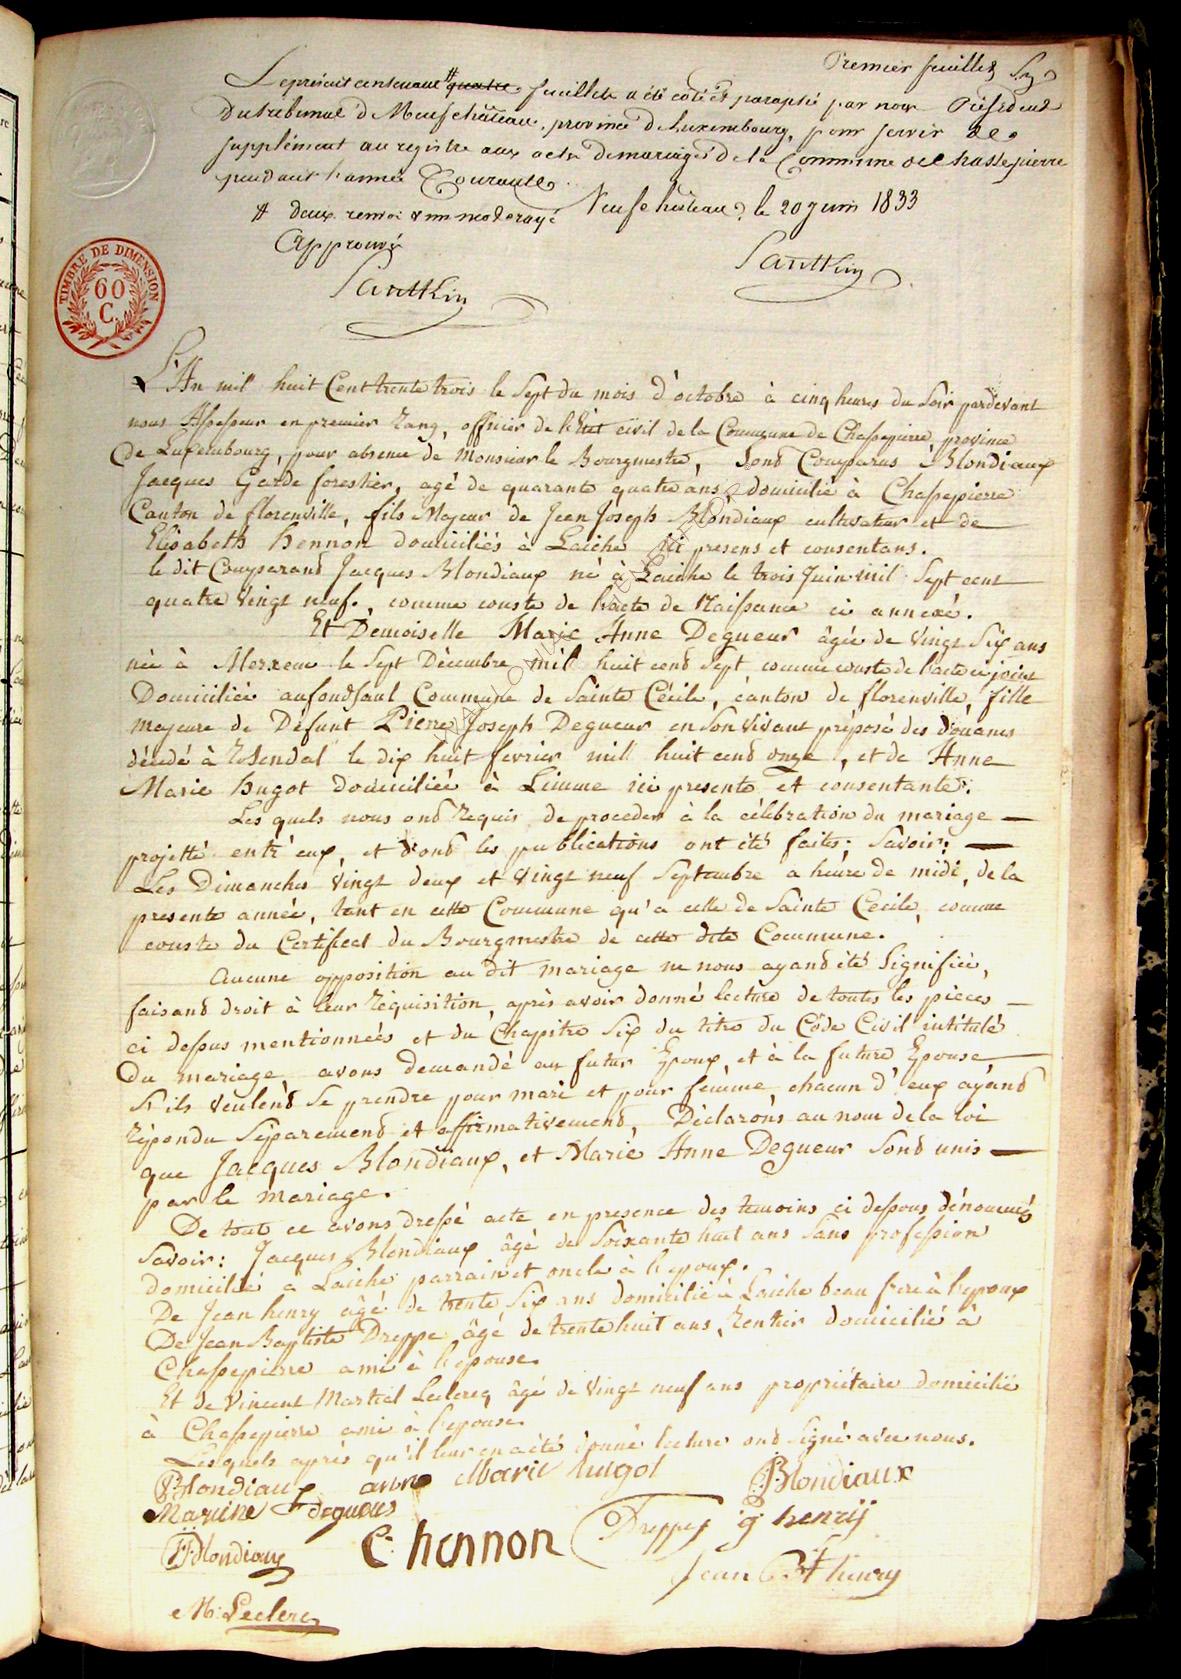 Premier feuillet
Le présent contenant # quatre feuillets a été coté et paraphé par nous Président
du tribunal de Neufchâteau, province de Luxembourg, pour servir de
supplément au registre aux actes de mariages de la Commune de Chassepierre
pendant l'année Courante
Neufchâteau, le 20 juin 1833
# deux renvoi & un mot rayé
Approuvé
Santkin
Santkin
TIMBRE DE DIMENSION
60
C.
L'An mil huit Cent trente trois le Sept du mois d'octobre à cinq heures du Soir pardevant
nous Assesseur en premier rang, officier de l'Etat civil de la Commune de Chassepierre, province
de Luxembourg, pour absence de Monsieur le Bourgmestre, Sont Comparus Blondiaux
Jacques Garde forestier, agé de quarante quatre ans, domicilié à Chassepierre
Canton de florenville, fils Majeur de Jean Joseph Blondiaux cultivateur et de
Elisabeth hennon domiciliés à Laiche ici presens et consentans.
le dit Comparand Jacques Blondiaux né à Laiche le trois Juin mil Sept cent
quatre vingt neuf, comme conste de l'acte de Naissance ci annexé.
Et Demoiselle Marie Anne Degueur âgée de vingt Six ans
née à Merxem le Sept Décembre mil huit cend sept comme conste de l'acte ci joint
Domiciliée aufondsaul Commune de Sainte Cécile, canton de florenville, fille
majeure de Défunt Pierre Joseph Degueur en Son Vivant préposé des Douanes
décédé à Rosendal le dix huit fevrier mil huit cend onze, et de Anne
Marie hugot domiciliée à Limme ici presente et consentante.
Les quels nous ond requis de proceder à la célébration du mariage
projetté entr'eux, et dond les publications ont été faites; Savoir:
Les Dimanches vingt deux et vingt neuf Septembre a heure de midi, de la
presente année, tant en cette Commune qu'a celle de Sainte Cecile, comme
conste du Certificat du Bourgmestre de cette dite Commune.
Aucune opposition au dit mariage ne nous ayand été Signifiée,
faisand droit à leur réquisition, après avoir donné lecture de toutes les pieces
ci dessus mentionneés et du Chapitre Six du titre du Côde Civil intitulé
Du mariage avons demandé au futur Epoux, et à la future Epouse
S'ils veulend Se prendre pour mari et pour femme, chacun d'eux ayand
répondu Séparemend et affirmativemend, Déclarons au nom de la loi
que Jacques Blondiaux, et Marie Anne Degueur Sond unis
par le mariage.
De tout ce avons dressé acte en presence des temoins ci dessous dénommés
Savoir: Jacques Blondiaux âgé de Soixante huit ans Sans profession
domicilié à Laiche parrain et oncle à l'epoux.
De Jean henry âgé de trente Six ans domicilié à Laiche beau frere à l'epoux
De Jean Baptiste Dreppe âgé de trente huit ans, Rentier domicilié à
Chassepierre ami à l'epouse.
Et de Vincent Martial Leclercq âgé de vingt neuf ans propriétaire domicilié
à Chassepierre ami à l'epouse.
Lesquels après qu'il leur en a été donné lecture ond Signé avec nous.
Blondiaux anne Marie hugot Blondiaux
degueur
Blondiaux C hennon Dreppe j henrÿ
Jean Bt henry
M. Leclerc